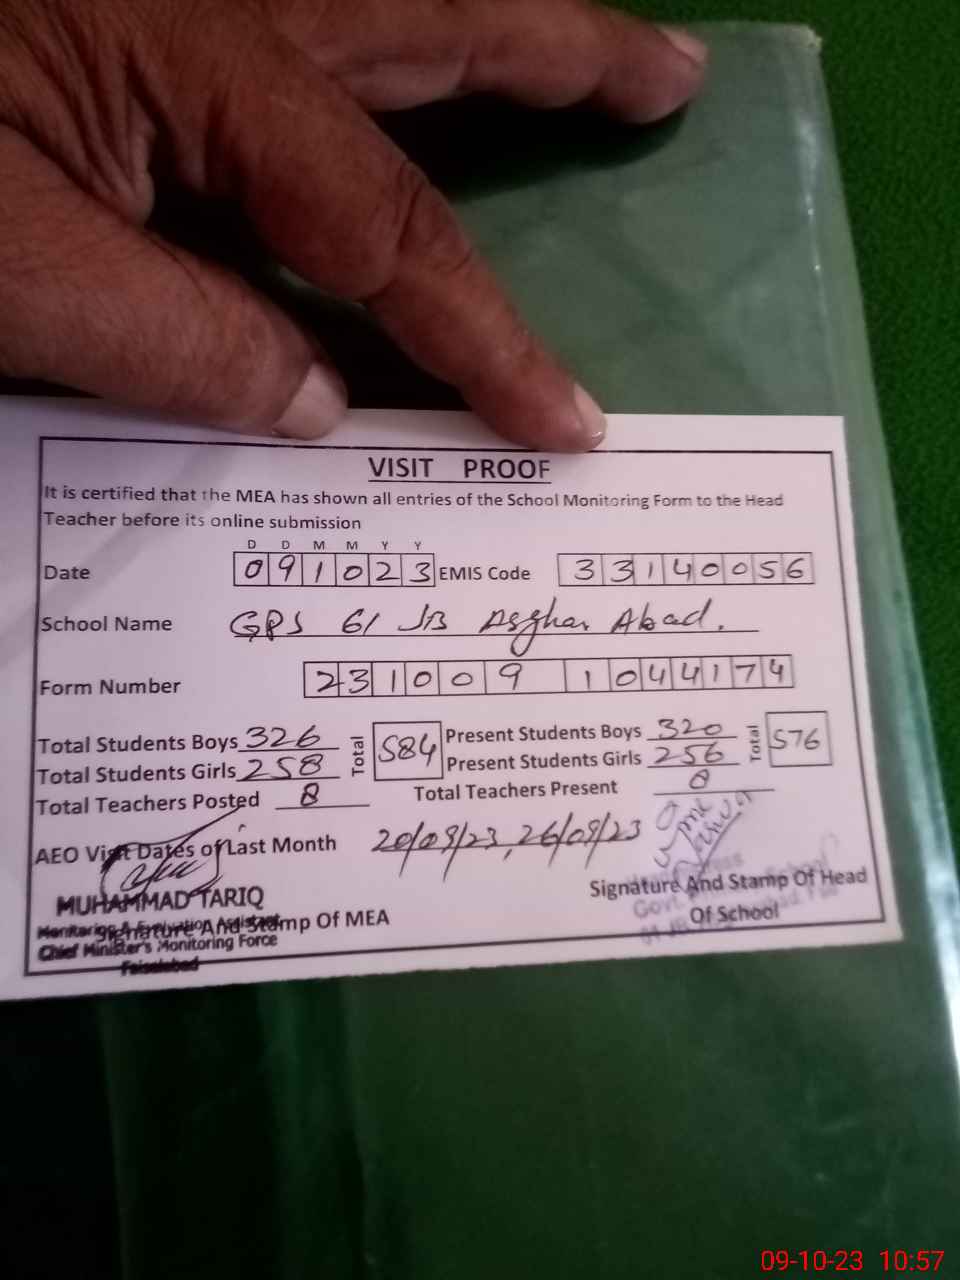 VISIT PROOF
It is certified that the MEA has shown all entries of the School Monitoring Form to the Head
Teacher before its online submission
D D M M Y Y
Date 091023 EMIS Code 33140056
School Name GPS 61 JB Asghar Abad.
Form Number 231009 1044174
Total Students Boys 326 Total 584 Present Students Boys 320 Total 576
Total Students Girls 258 Present Students Girls 256
Total Teachers Posted 8 Total Teachers Present 8
AEO Visit Dates of Last Month 20/09/23, 26/09/23
MUHAMMAD TARIQ
Monitoring & Evaluation Assistant
Signature And Stamp Of MEA
Chief Minister's Monitoring Force
Faisalabad
Signature And Stamp Of Head
Of School
Govt. School
09-10-23 10:57